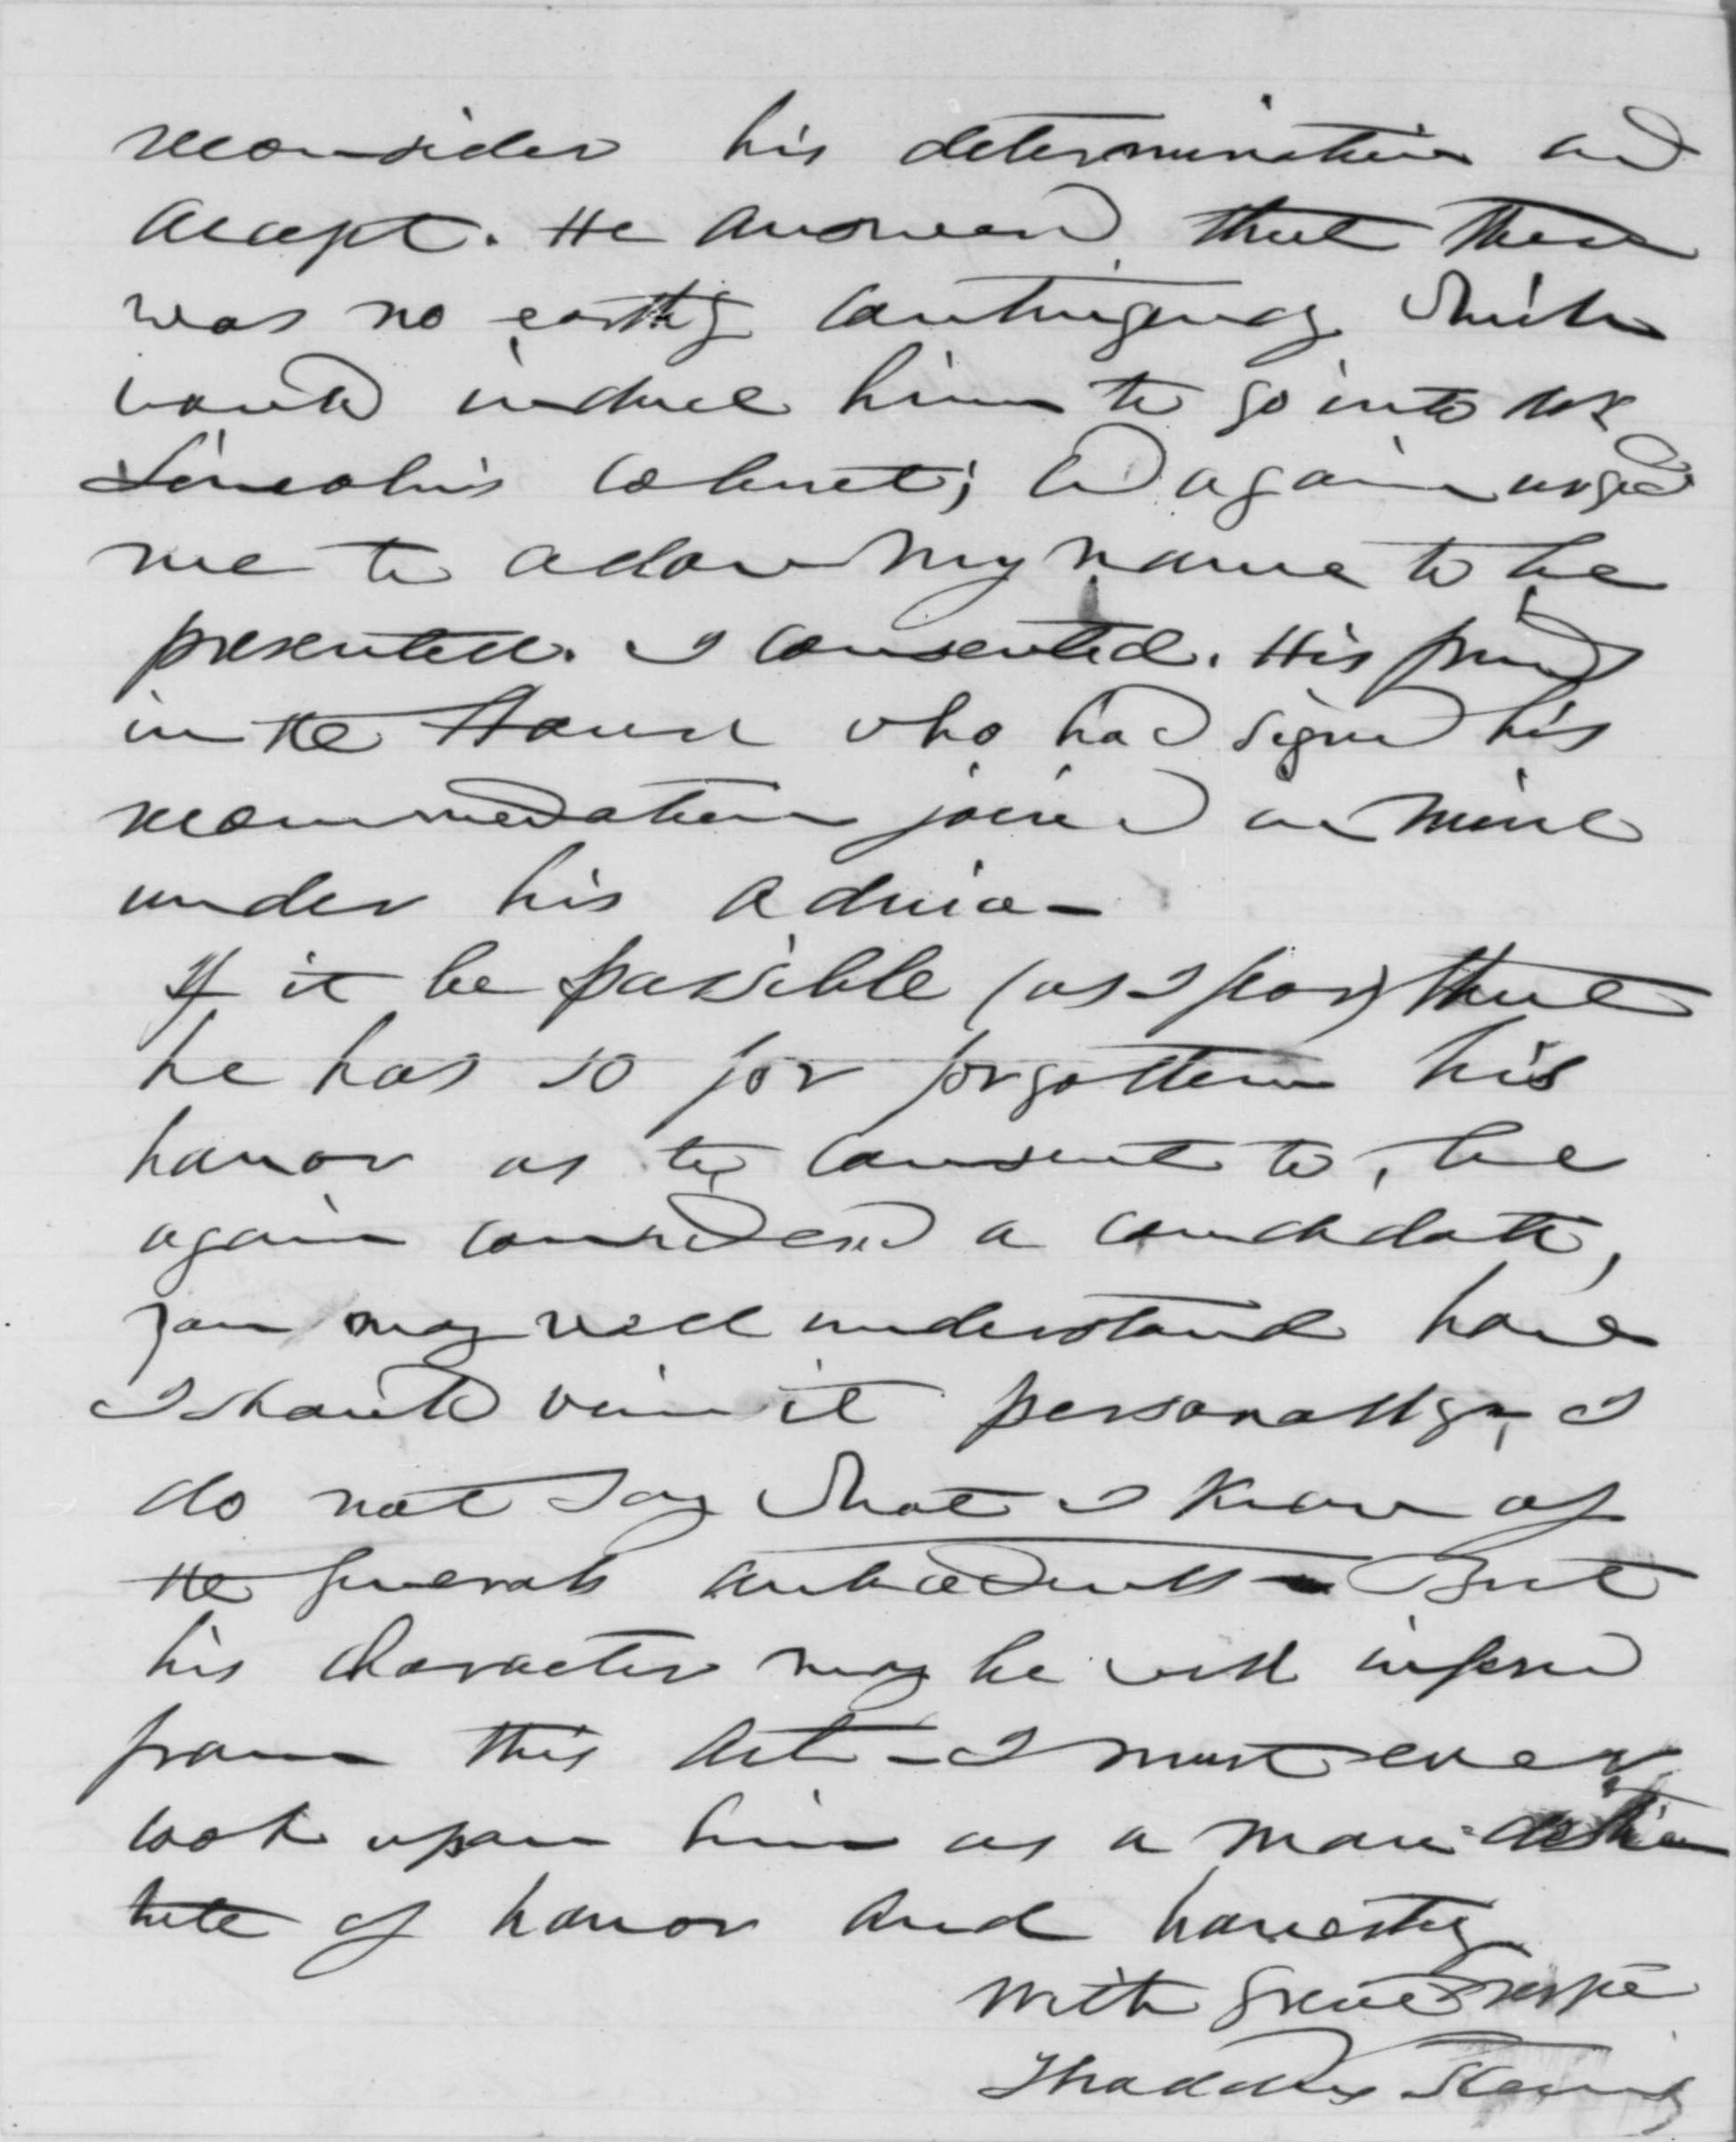 reconsider his determination and
accept. He answered that there
was no earthly contingency which
would induce him to go into Mr
Lincoln's cabinet; and again urged
me to allow my name to be
presented. I consented. His friends
in the House who had signed his
recommendation joined in mine
under his advice—
If it be possible (as I fear) that
he has so far forgotten his
honor as to consent to be
again considered a candidate,
you may well understand how
I should view it personally, I
do not say what I know of
the Generals antecedents — But
his character may be well inferred
from this act — I must ever
look upon him as a man desti
tute of honor and honesty
With great respe
Thaddeus Stevens